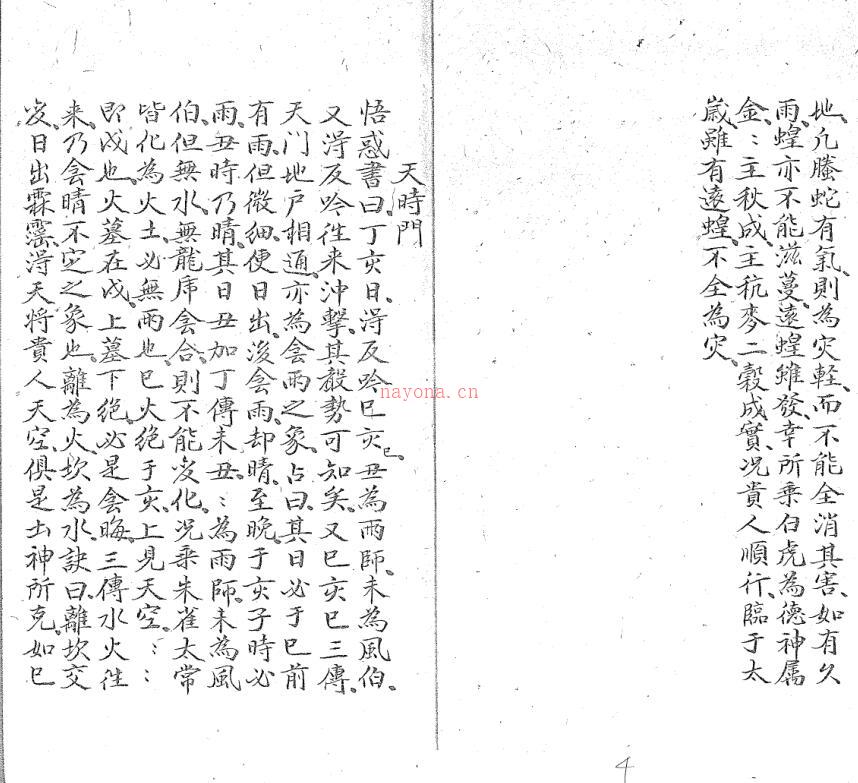 地凢螣蛇有氣則為灾軽而不能全消其害如有久
雨蝗亦不能滋蔓逺蝗雖發幸所乗白虎為德神属
金：主秋成主秔麥二穀成實况貴人順行臨于太
歳雖有逺蝗不全為灾
天時門
悟惑書曰丁亥日淂反吟巳亥巳丑為雨師未為風伯
又淂反吟徃来沖擊其殺勢可知矣又巳亥巳三傳
天门地户相通亦為雲雨之象占曰其日必于巳前
有雨但微细便日出後雲雨却晴至晩于亥子時必
雨丑時乃晴其日丑加丁傳未丑：為雨師未為風
伯但無水無龍虎雲合則不能变化况乗朱雀太常
皆化為火土必無雨也巳火絶于亥上見天空：：
即戌也火墓在戌上墓下絶必是雲晦三傳水火徃
来乃雲晴不定之象也離為火坎為水訣曰離坎交
变日出霖霪淂天将貴人天空俱是土神所克如巳
nayona.cn
4